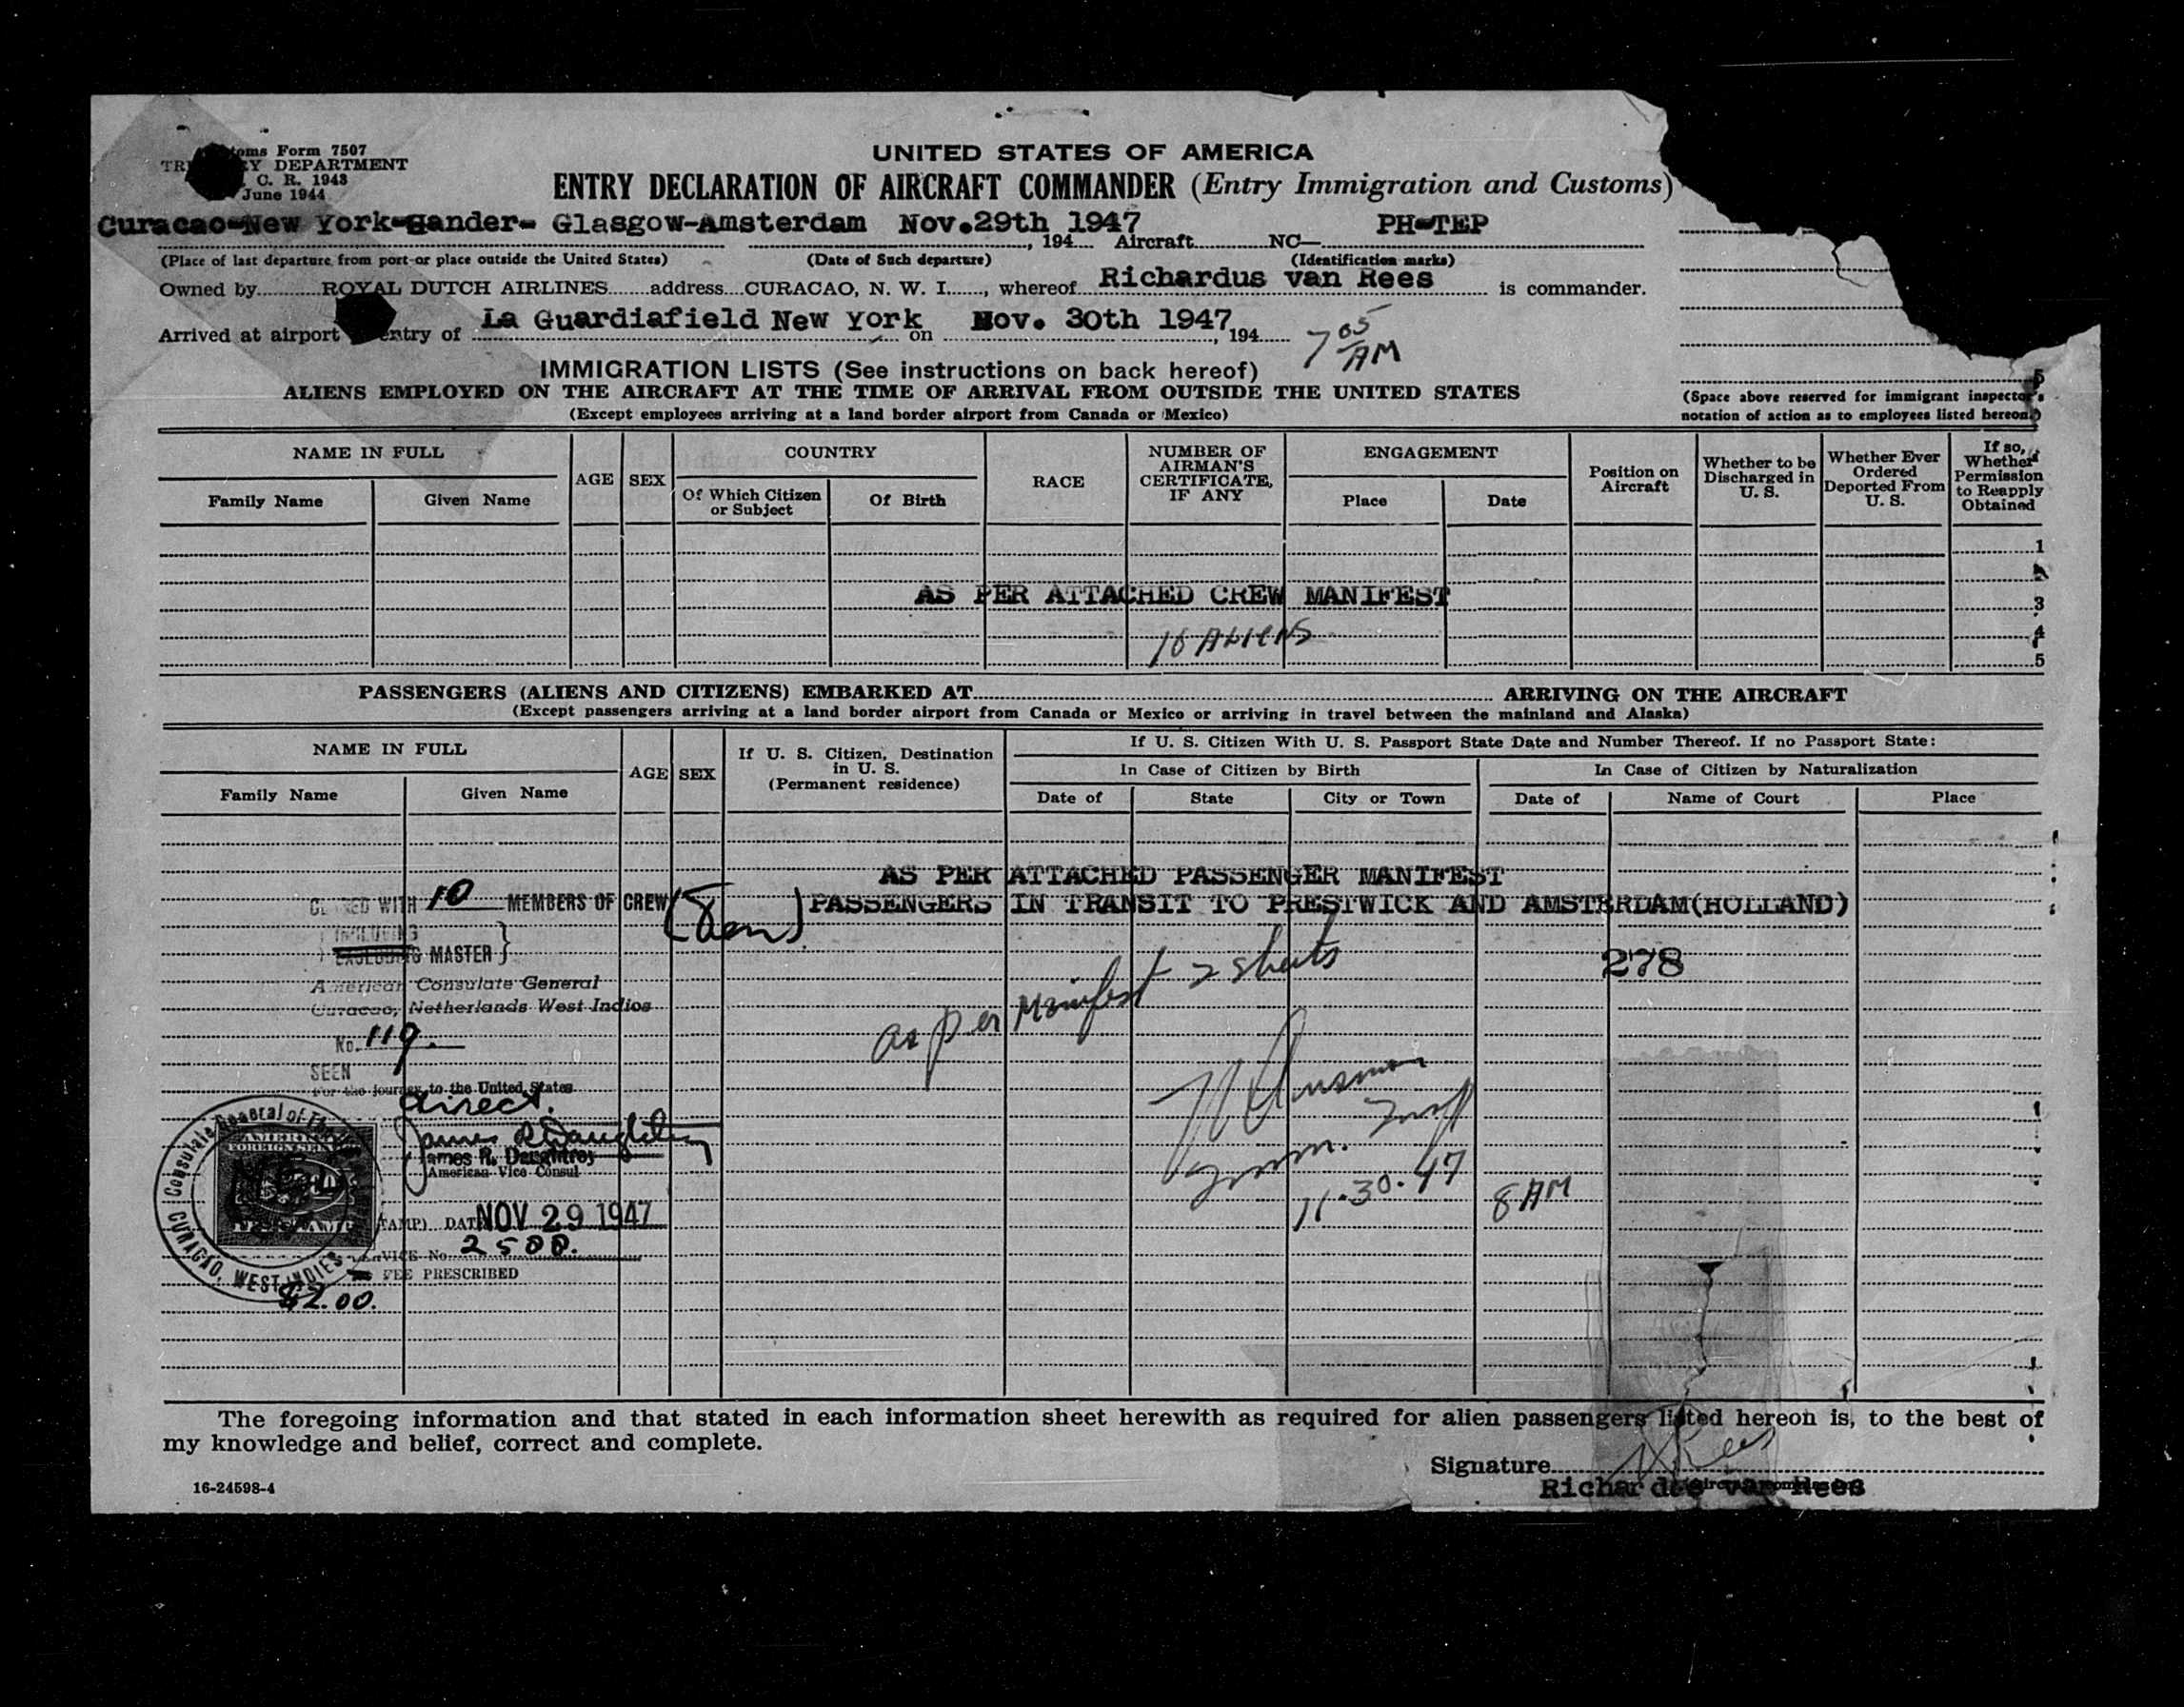 toms Form 7507
TR Y DEPARTMENT
C. R. 1943
June 1944
UNITED STATES OF AMERICA
ENTRY DECLARATION OF AIRCRAFT COMMANDER (Entry Immigration and Customs)
Curacao-New York-Gander- Glasgow-Amsterdam Nov.29th 1947 PH-TEP
, 194 Aircraft NC—
(Place of last departure from port or place outside the United States) (Date of Such departure) (Identification marks)
Owned by ROYAL DUTCH AIRLINES address CURACAO, N. W. I., whereof Richardus van Rees is commander.
Arrived at airport entry of La Guardiafield New York on Nov. 30th 1947, 194
7 05 AM
IMMIGRATION LISTS (See instructions on back hereof)
ALIENS EMPLOYED ON THE AIRCRAFT AT THE TIME OF ARRIVAL FROM OUTSIDE THE UNITED STATES
(Except employees arriving at a land border airport from Canada or Mexico)
5
(Space above reserved for immigrant inspector's
notation of action as to employees listed hereon.)
NAME IN FULL
Family Name Given Name
AGE SEX
COUNTRY
Of Which Citizen or Subject Of Birth
RACE
NUMBER OF AIRMAN'S CERTIFICATE, IF ANY
ENGAGEMENT
Place Date
Position on Aircraft
Whether to be Discharged in U. S.
Whether Ever Ordered Deported From U. S.
If so, Whether Permission to Reapply Obtained
1
AS PER ATTACHED CREW MANIFEST
3
10 ALIENS
4
5
PASSENGERS (ALIENS AND CITIZENS) EMBARKED AT ARRIVING ON THE AIRCRAFT
(Except passengers arriving at a land border airport from Canada or Mexico or arriving in travel between the mainland and Alaska)
NAME IN FULL
Family Name Given Name
AGE SEX
If U. S. Citizen, Destination in U. S. (Permanent residence)
If U. S. Citizen With U. S. Passport State Date and Number Thereof. If no Passport State:
In Case of Citizen by Birth In Case of Citizen by Naturalization
Date of State City or Town Date of Name of Court Place
AS PER ATTACHED PASSENGER MANIFEST
PASSENGERS IN TRANSIT TO PRESTWICK AND AMSTERDAM(HOLLAND)
WITH 10 MEMBERS OF CREW (Ten)
INCLUDING
EXCLUDING MASTER
278
American Consulate General
Curacao, Netherlands West Indies
as per Manifest 2 sheets
No. 119.
SEEN
For the journey to the United States
direct.
James R Daughtrey
James R. Daughtrey
American Vice Consul
Consulate General of
CURACAO, WEST INDIES
AMERICAN
FOREIGN SERVICE
Imm. Insp
11-30-47 8 AM
TAMP) DATE NOV 29 1947
VICE No. 2500.
FEE PRESCRIBED
$2.00.
The foregoing information and that stated in each information sheet herewith as required for alien passengers listed hereon is, to the best of
my knowledge and belief, correct and complete.
Signature Rees
Richardus van Rees
16-24598-4